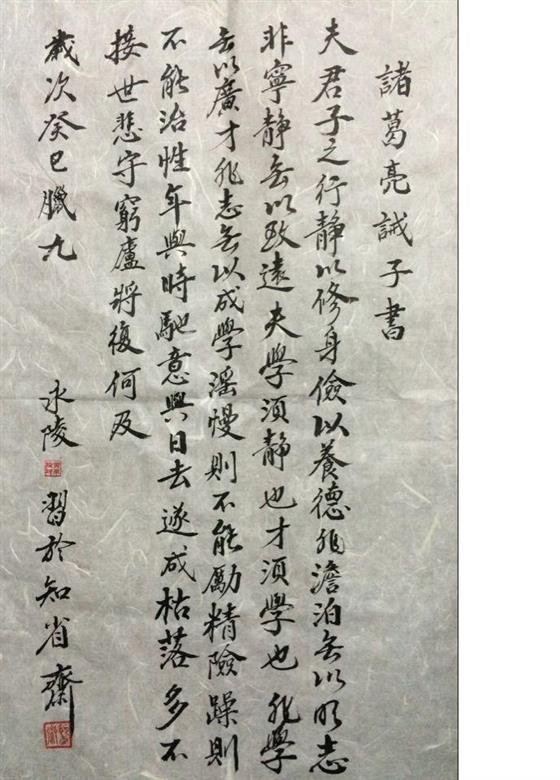 諸葛亮誡子書
夫君子之行静以修身儉以養德非澹泊無以明志
非寧静無以致遠夫學須静也才須學也非學
無以廣才非志無以成學滛慢則不能勵精險躁則
不能治性年與時馳意與日去遂成枯落多不
接世悲守窮廬將復何及
歲次癸巳臘九 永陵 習於知省齋